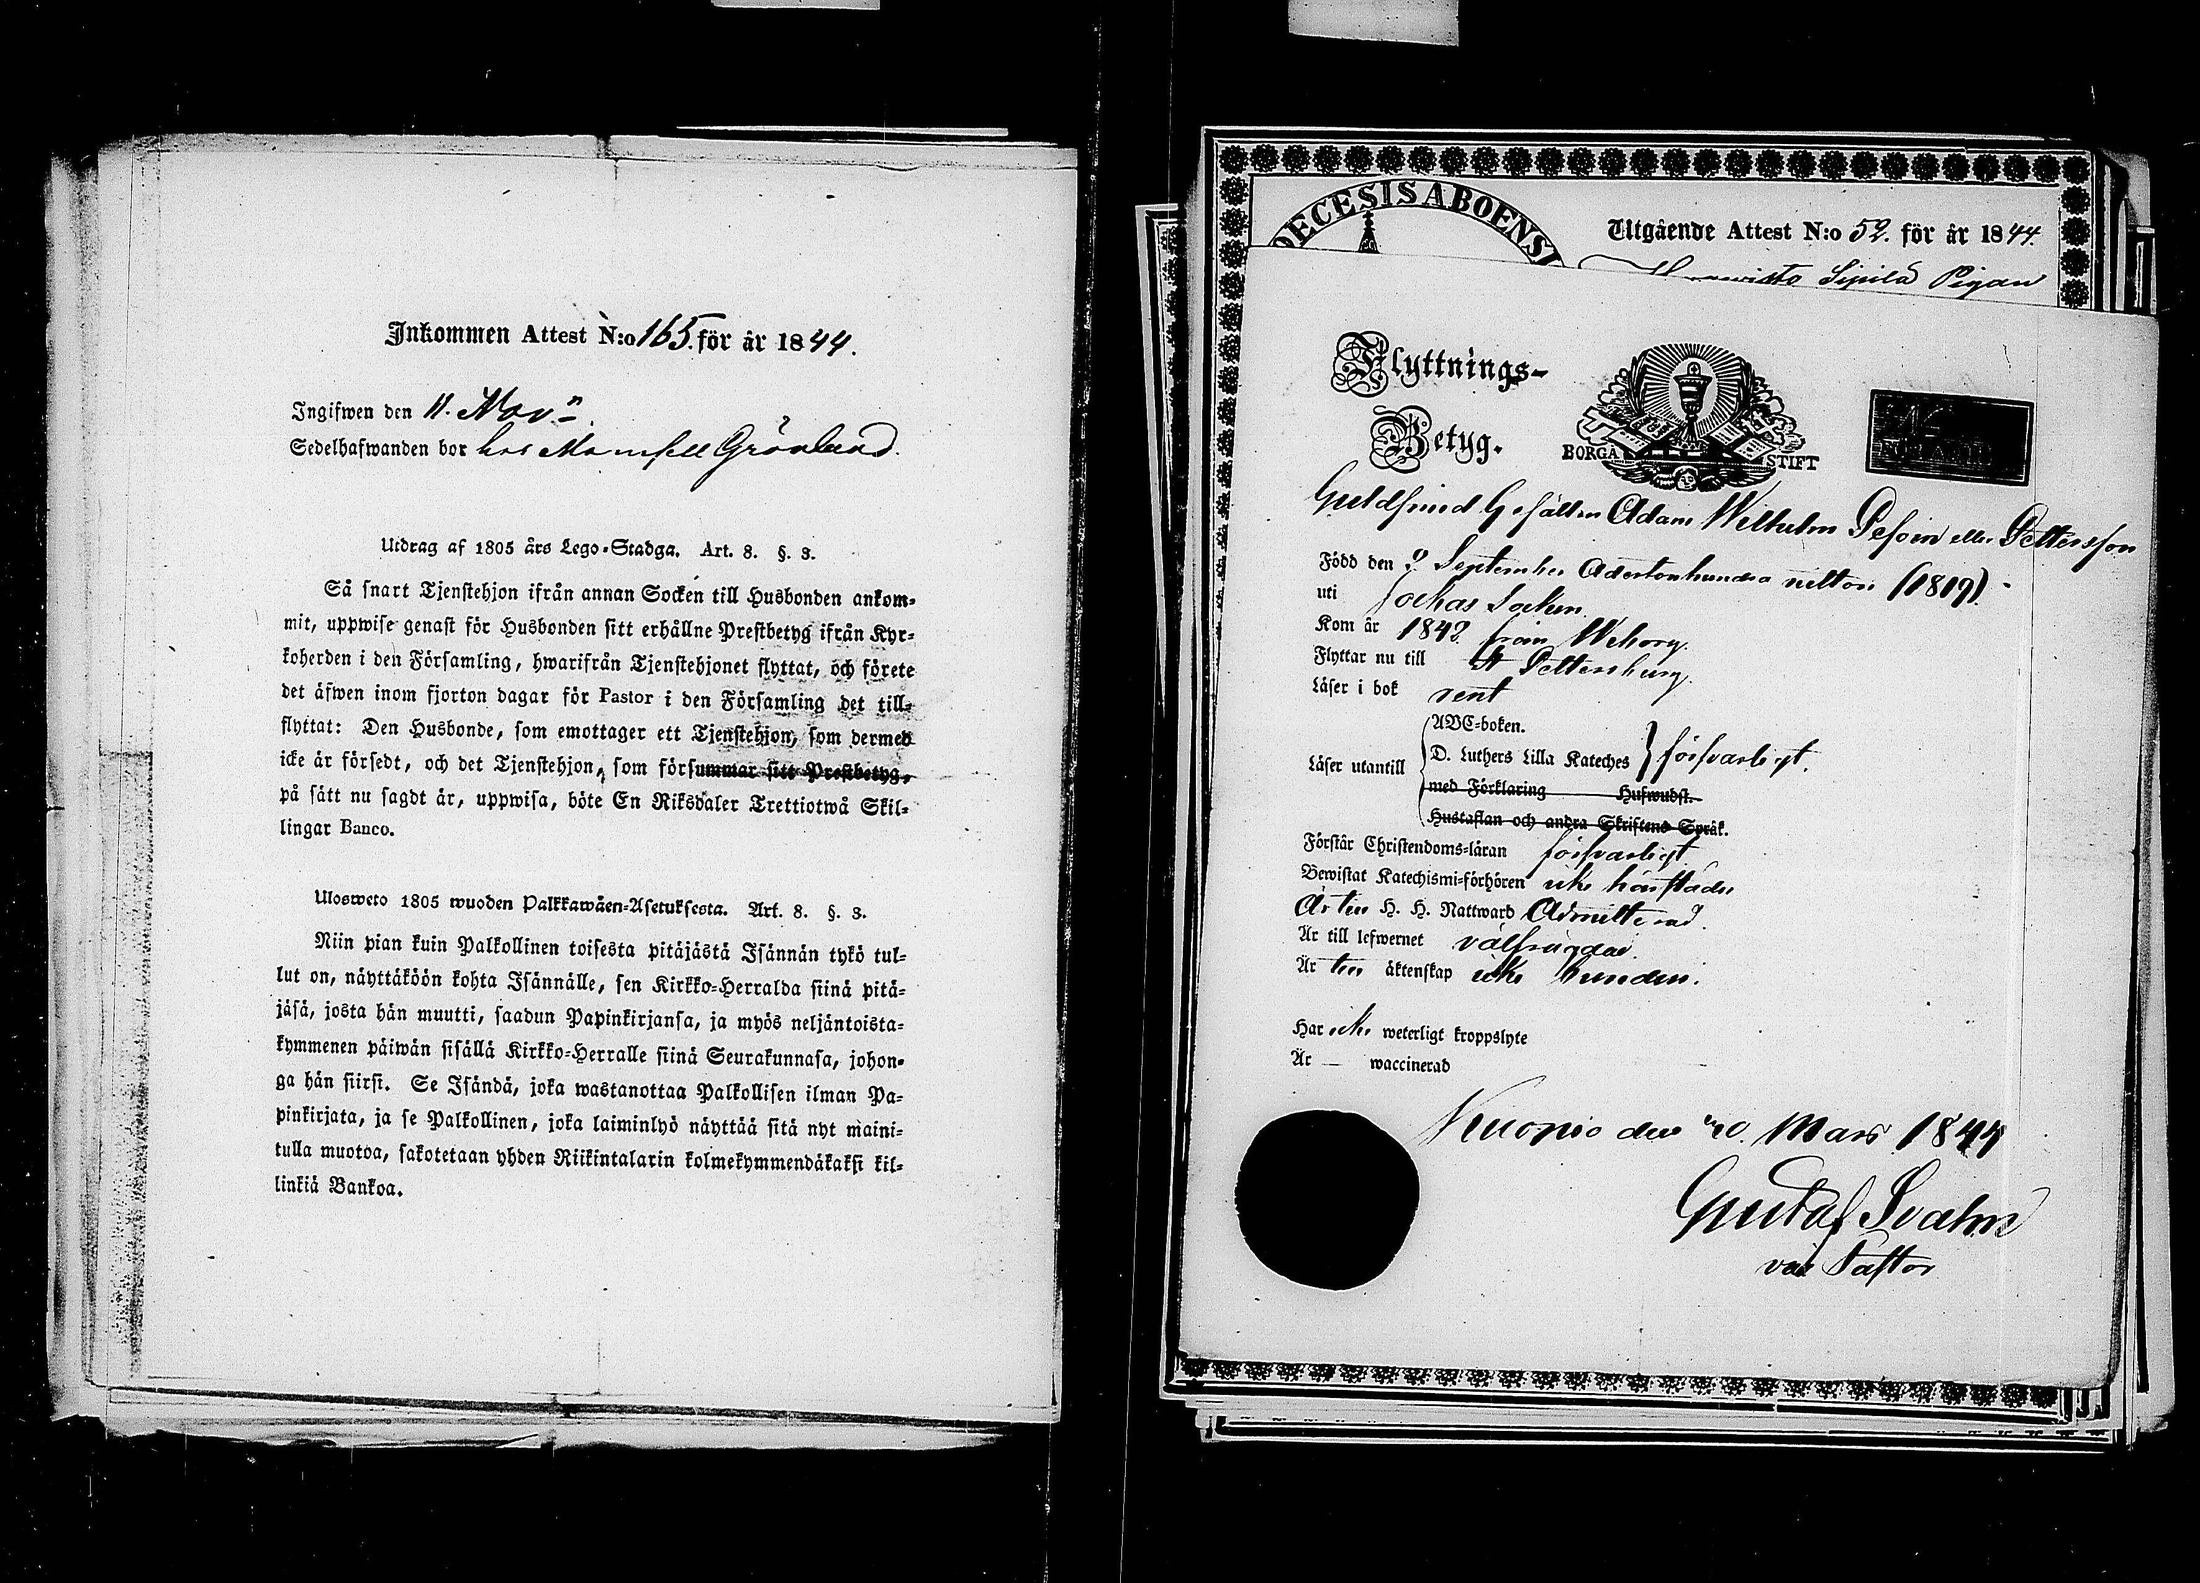 Inkommen Attest N:o 165. för år 1844.
Ingifwen den 11. Novn
Sedelhafwanden bor hos Mamsell Grönlund.
Utdrag af 1805 års Lego-Stadga. Art. 8. §. 3.
Så snart Tjenstehjon ifrån annan Socken till Husbonden ankom-
mit, uppwise genast för Husbonden sitt erhållne Prestbetyg ifrån Kyr-
koherden i den Församling, hwarifrån Tjenstehjonet flyttat, och förete
det äfwen inom fjorton dagar för Pastor i den Församling det till-
flyttat: Den Husbonde, som emottager ett Tjenstehjon, som dermed
icke är försedt, och det Tjenstehjon, som försummar sitt Prestbetyg,
på sätt nu sagdt är, uppwisa, böte En Riksdaler Trettiotwå Skil-
lingar Banco.
Ulosweto 1805 wuoden Palkkawäen-Asetuksesta. Art. 8. §. 3.
Niin pian kuin Palkollinen toisesta pitäjästä Isännän tykö tul-
lut on, näyttäköön kohta Isännälle, sen Kirkko-Herralda siinä pitä-
jäsä, josta hän muutti, saadun Papinkirjansa, ja myös neljäntoista-
kymmenen päiwän sisällä Kirkko-Herralle siinä Seurakunnasa, johon-
ga hän siirsi. Se Isändä, joka wastanottaa Palkollisen ilman Pa-
pinkirjata, ja se Palkollinen, joka laiminlyö näyttää sitä nyt maini-
tulla muotoa, sakotetaan yhden Riikintalarin kolmekymmendäkaksi kil-
linkiä Bankoa.
DECESIS ABOENS
Utgående Attest N:o 52. för år 1844.
Sipilä Pigan
Flyttnings-
Betyg.
BORGÅ STIFT
Guldsmed Gesällen Adam Wilhelm Pesoin eller Pettersson
Född den 9 September Adertonhundra nitton (1819).
uti Jockas Socken.
Kom år 1842 från Wiborg.
Flyttar nu till St Pettersburg.
Läser i bok rent
Läser utantill
ABC-boken.
D. Luthers Lilla Kateches försvarligt.
med Förklaring Hufwudst.
Hustaflan och andra Skriftens Språk.
Förstår Christendoms-läran försvarligt
Bewistat Katechismi-förhören icke härstädes
Är till H. H. Nattward Admitterad.
Är till lefwernet välfrägdad.
Är till äktenskap icke bunden.
Har icke weterligt kroppslyte
Är — waccinerad
Kuopio den 20. Mars 1844
Gustaf Svahn
vice Pastor